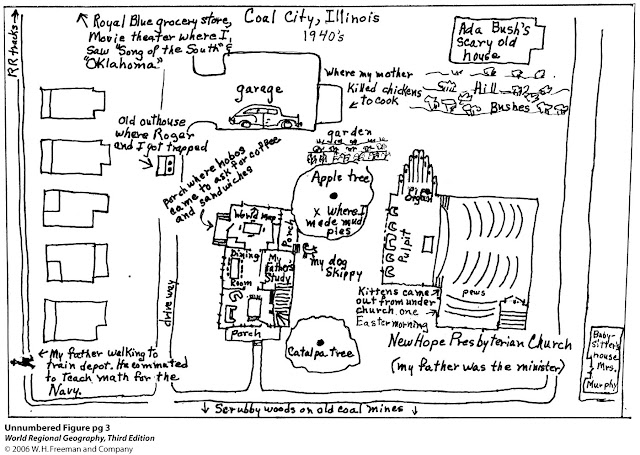 RR tracks
Royal Blue grocery store,
Movie theater where I
saw "Song of the South" &
"Oklahoma"
Coal City, Illinois
1940's
Ada Bush's
scary old
house
garage
Where my mother
killed chickens
to cook
Hill
Bushes
Old outhouse
where Roger
and I got trapped
Porch where hobos
came to ask for coffee
and sandwiches
garden
Apple tree
x Where I
made mud
pies
Pipe
Organ
Pulpit
pews
World Map
Porch
Dining
Room
My
Father's
Study
my dog
Skippy
Kittens came
out from under
church one
Easter morning
drive way
Porch
Catalpa tree
New Hope Presbyterian Church
(my father was the minister)
Baby-
sitter's
house
Mrs.
Murphy
My father walking to
train depot. He commuted
to Teach math for the
Navy.
Scrubby woods on old coal mines
Unnumbered Figure pg 3
World Regional Geography, Third Edition
© 2006 W.H. Freeman and Company